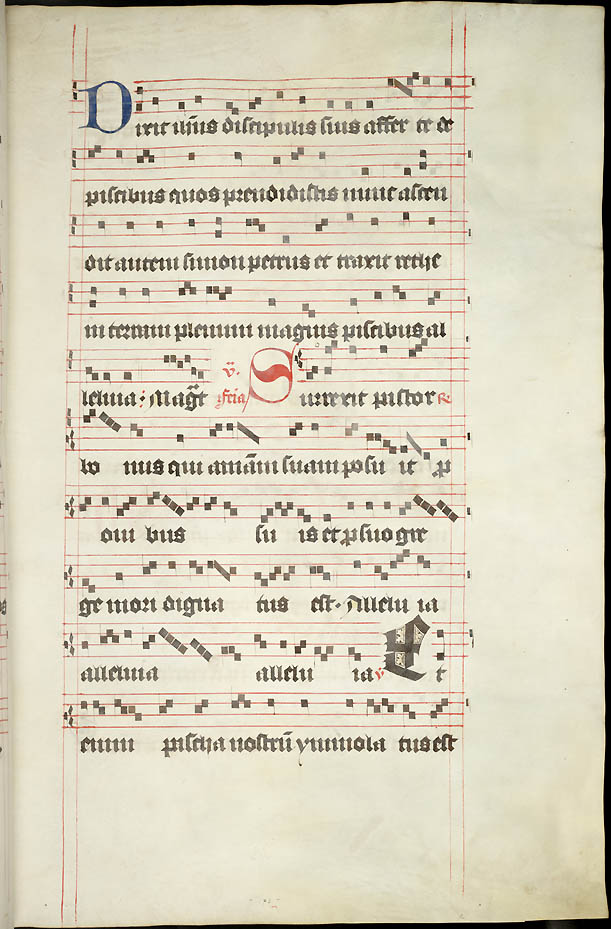 Dixit ihūs discipulis suis affer te de
piscibus quos prendidistis nunc ascen
dit autem simon petrus et traxit rethe
in terram plenum magnis piscibus al
leluia : Magt̄ v̄. feria Surrexit pastor R
bo nus qui animā suam posu it p
oui bus su is et p suo gre
ge mori digna tus est. Allelu ia
alleluia allelu ia v Et
enim pascha nostrū ymmola tus est